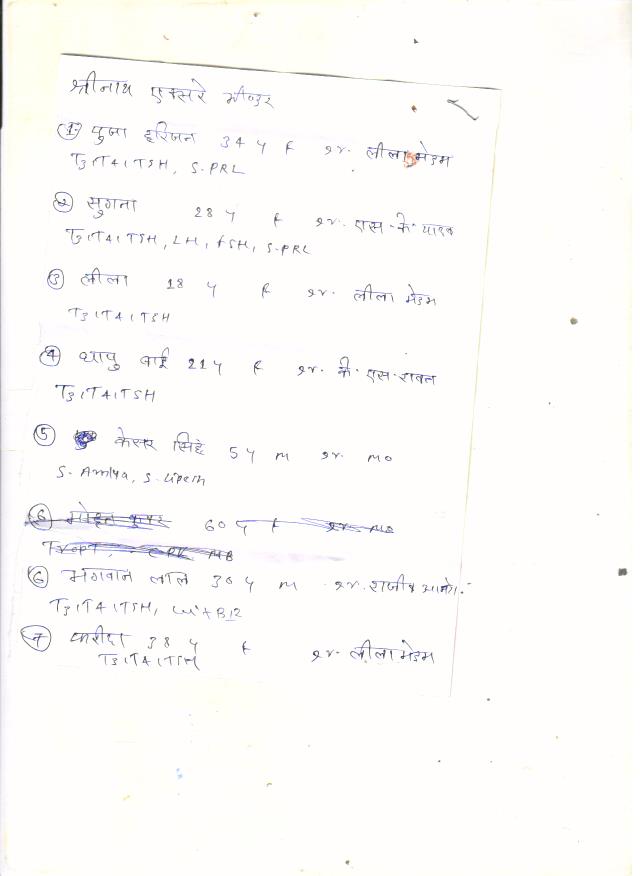 श्रीनाथ एक्सरे भीण्डर
① पुजा हरिजन 34 y F डॉ. लीला मेडम
T3, T4, TSH, S-PRL
② सुगना 28 y F डॉ. एस. के. यादव
T3, T4, TSH, LH, FSH, S-PRL
③ लीला 18 y F डॉ. लीला मेडम
T3, T4, TSH
④ धापु बाई 21 y F डॉ. के. एस. रावत
T3, T4, TSH
⑤ केसर सिंह 54 M डॉ. MO
S. Amlya, S. Lipesh
⑥ 60 y F डॉ. MO
Tropt, CPK MB
⑥ भगवान लाल 30 y M डॉ. राजीव
T3, T4, TSH, vit B12
⑦ फरीदा 38 y F डॉ. लीला मेडम
T3, T4, TSH